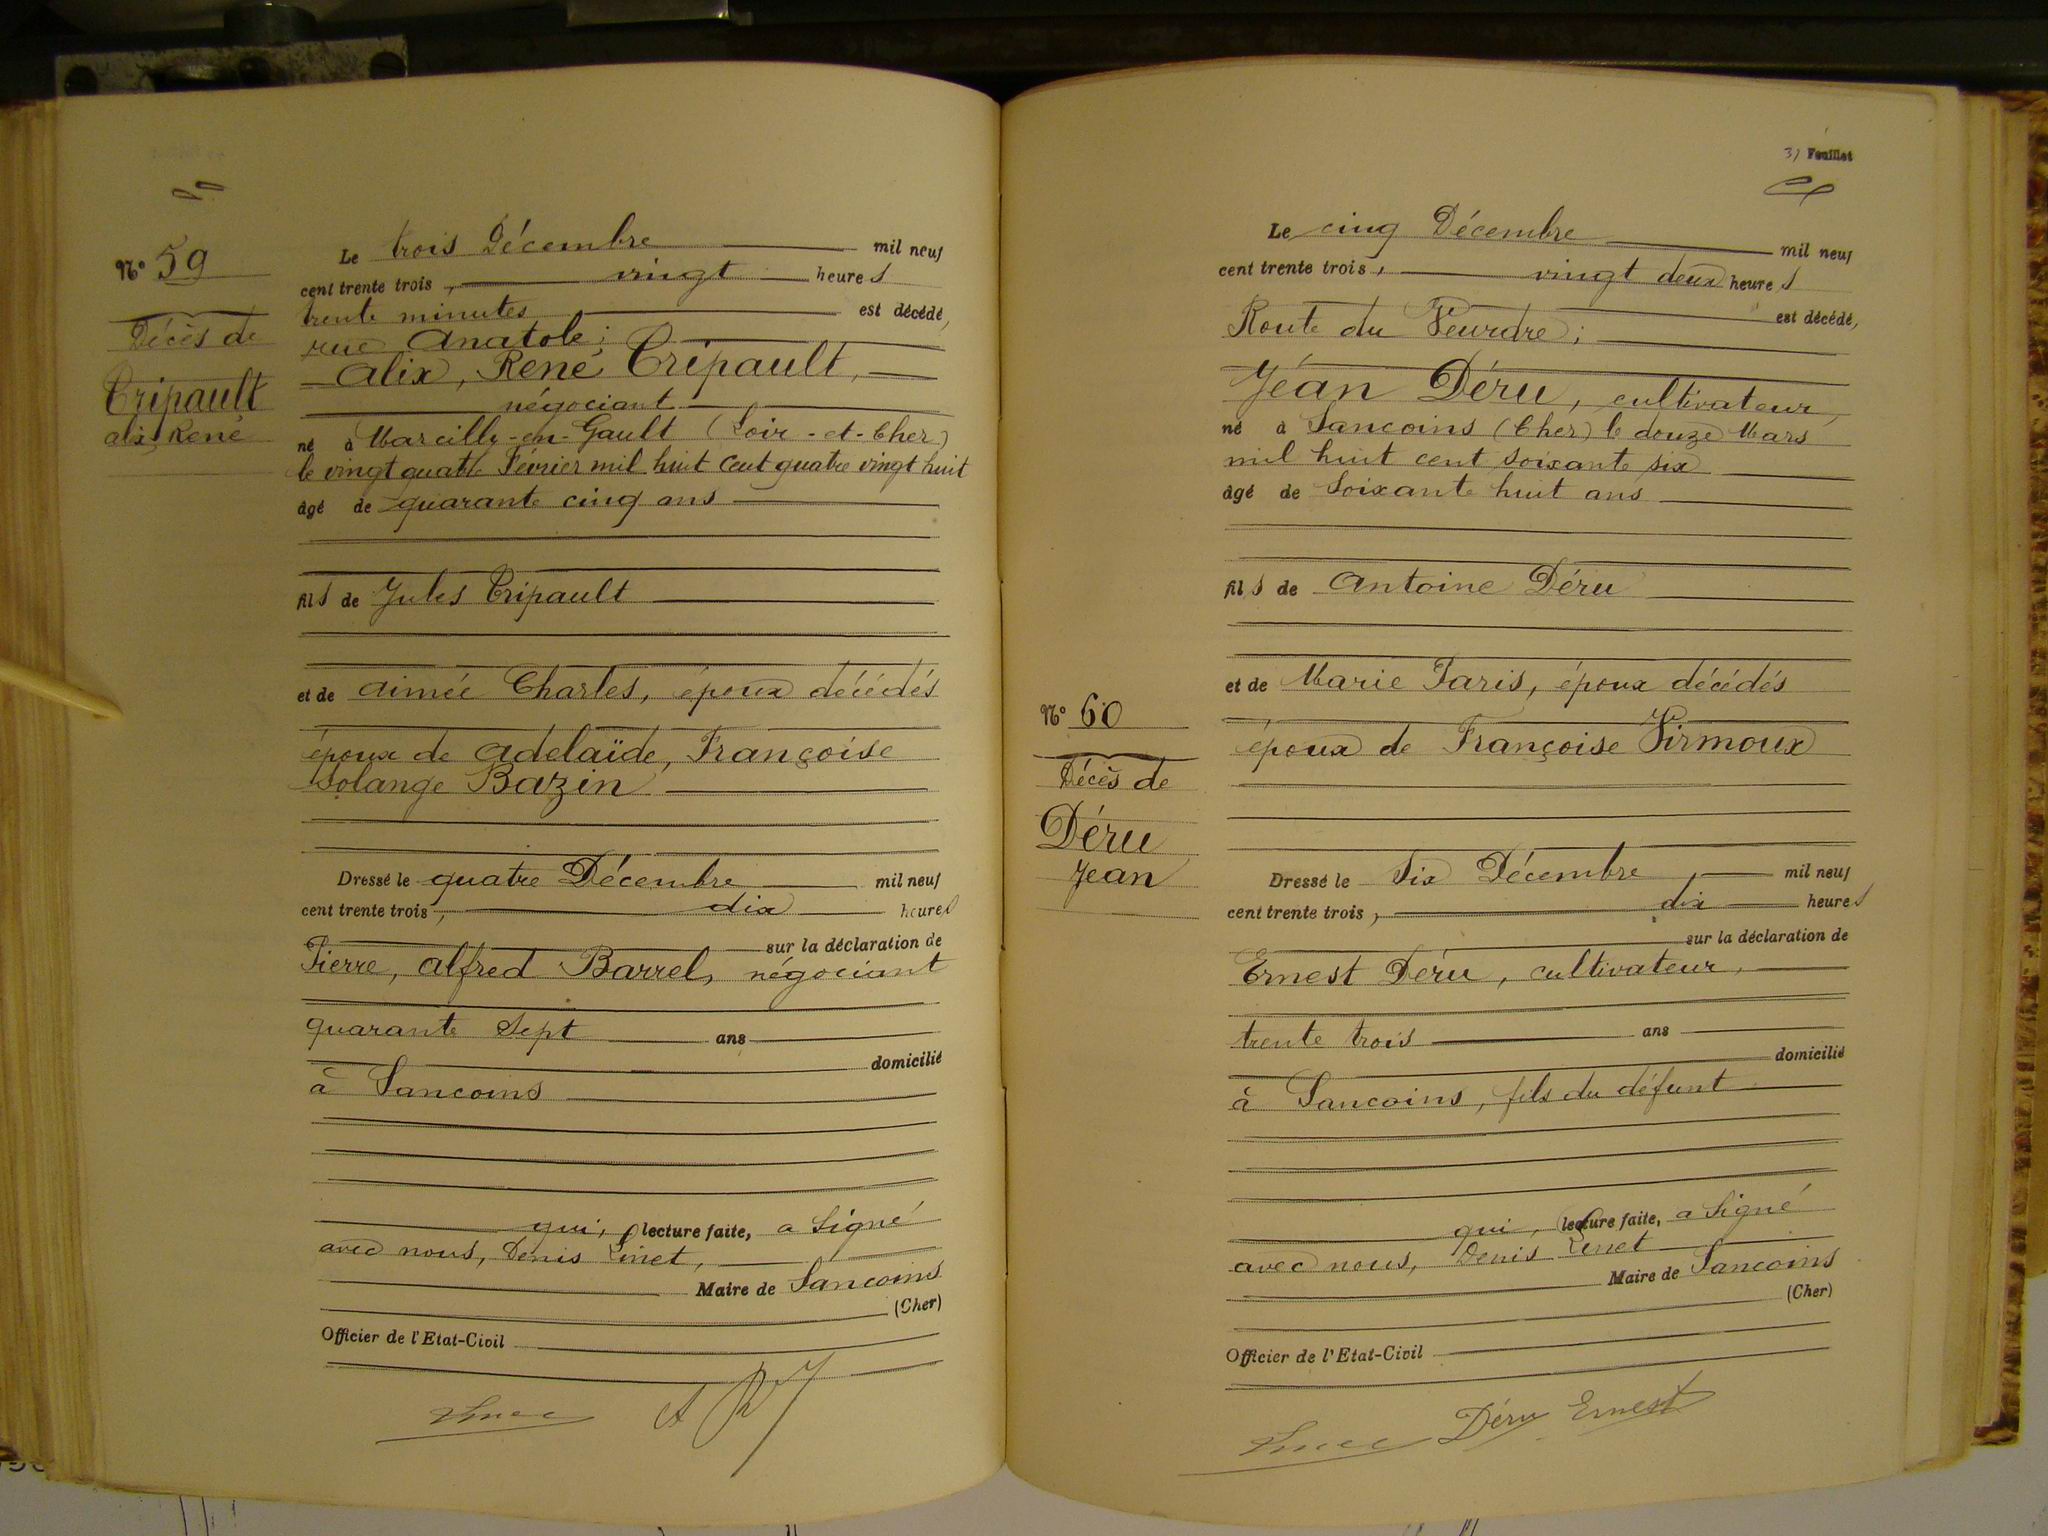 N° 59
Décès de
Tripault
alix René
Le trois Décembre mil neuf
cent trente trois, vingt heures
trente minutes est décédé,
rue Anatole;
Alix, René Tripault,
négociant
né à Marcilly-en-Gault (Loir-et-Cher)
le vingt quatre Février mil huit cent quatre vingt huit
âgé de quarante cinq ans
fils de Jules Tripault
et de Aimée Charles, époux décédés
époux de Adelaïde, Françoise
Solange Bazin
Dressé le quatre Décembre mil neuf
cent trente trois, dix heures
sur la déclaration de
Pierre, Alfred Barrel, négociant
quarante sept ans
domicilié
à Sancoins
qui, lecture faite, a signé
avec nous, Denis Linet,
Maire de Sancoins
(Cher)
Officier de l'Etat-Civil
Feuillet
Le cinq Décembre mil neuf
cent trente trois, vingt deux heures
est décédé,
Route du Veurdre;
Jean Déru, cultivateur,
né à Sancoins (Cher) le douze Mars
mil huit cent soixante six
âgé de soixante huit ans
fils de Antoine Déru
et de Marie Paris, époux décédés
N° 60
Décès de
Déru
Jean
époux de Françoise Virmoux
Dressé le Six Décembre, mil neuf
cent trente trois, dix heures
sur la déclaration de
Ernest Déru, cultivateur,
trente trois ans
domicilié
à Sancoins, fils du défunt
qui, lecture faite, a signé
avec nous, Denis Linet
Maire de Sancoins
(Cher)
Officier de l'Etat-Civil
Déru Ernest